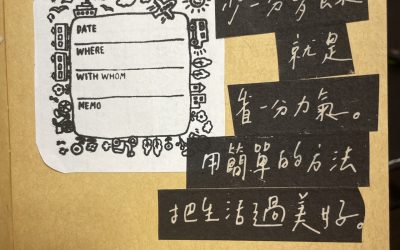 DATE
WHERE
WITH WHOM
MEMO
少一分
就是
省一分力氣。
用簡單的方法
把生活過美好。